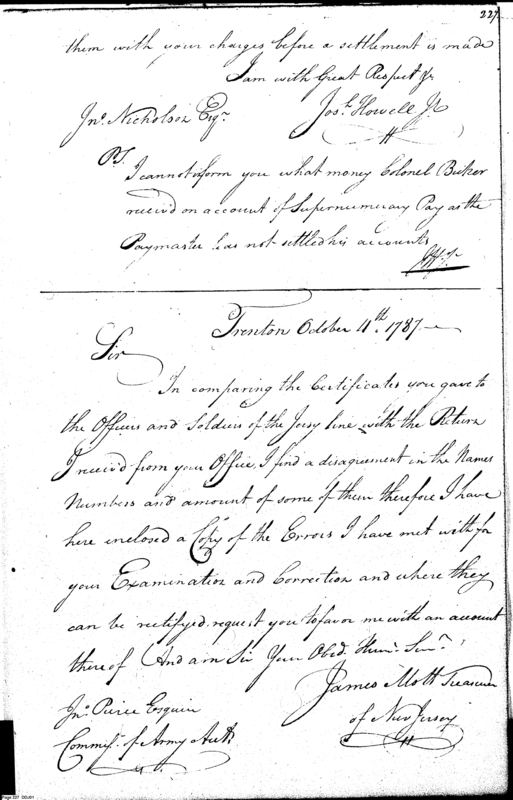 227
them with your charges before a settlement is made
I am with Great Respect &c
Jno. Nicholson Esqr. Josh. Howell Jr
P.S.
I cannot inform you what money Colonel Butler
receiv'd on account of Supernumerary Pay as the
Paymaster has not settled his accounts
JHJr
Trenton October 4th. 1787
Sir
In comparing the Certificates you gave to
the Officers and Soldiers of the Jersy line with the Return
I receiv'd from your Office, I find a disagreement in the Names
Numbers and amount of some of them therefore I have
here inclosed a Copy of the Errors I have met with for
your Examination and Correction and where they
can be rectifyed request you to favor me with an account
there of And am Sir Your Obed. Hum. Serv.
James Mott Treasurer
Jno. Pierce Esquire of New Jersey
Commisr. of Army Acctts
Page 227